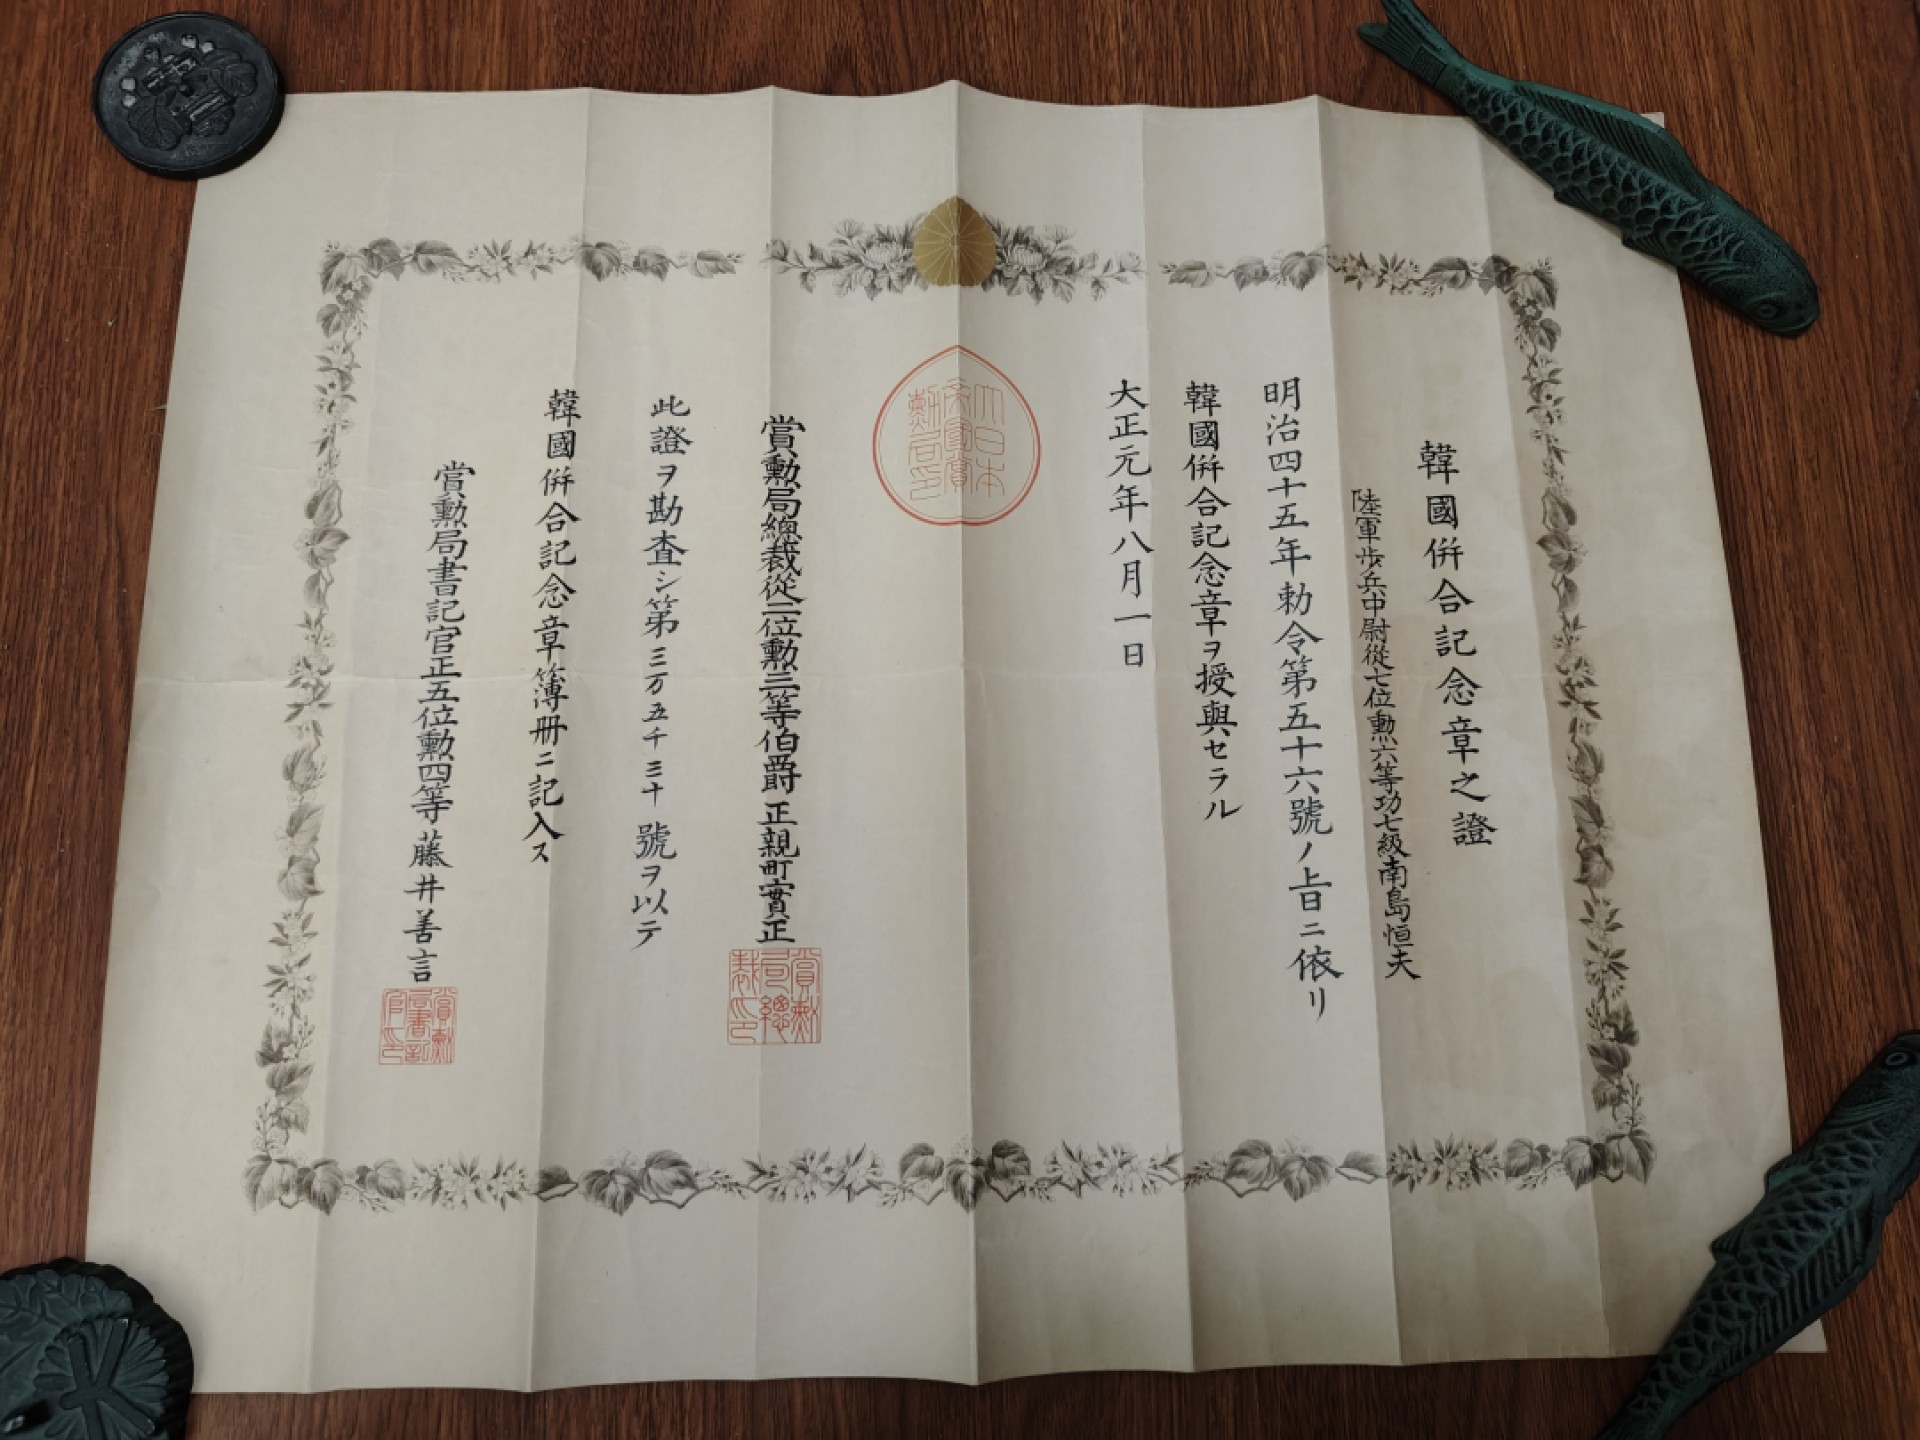 韓國併合記念章之證
陸軍歩兵中尉從七位勲六等功七級南島恒夫
明治四十五年勅令第五十六號ノ旨ニ依リ
韓國併合記念章ヲ授與セラル
大正元年八月一日
大日本帝國賞勲局印
賞勲局總裁從二位勲三等伯爵正親町實正
賞勲局總裁印
此證ヲ勘査シ第三万五千三十號ヲ以テ
韓國併合記念章簿册ニ記入ス
賞勲局書記官正五位勲四等藤井善言
賞勲局書記官印